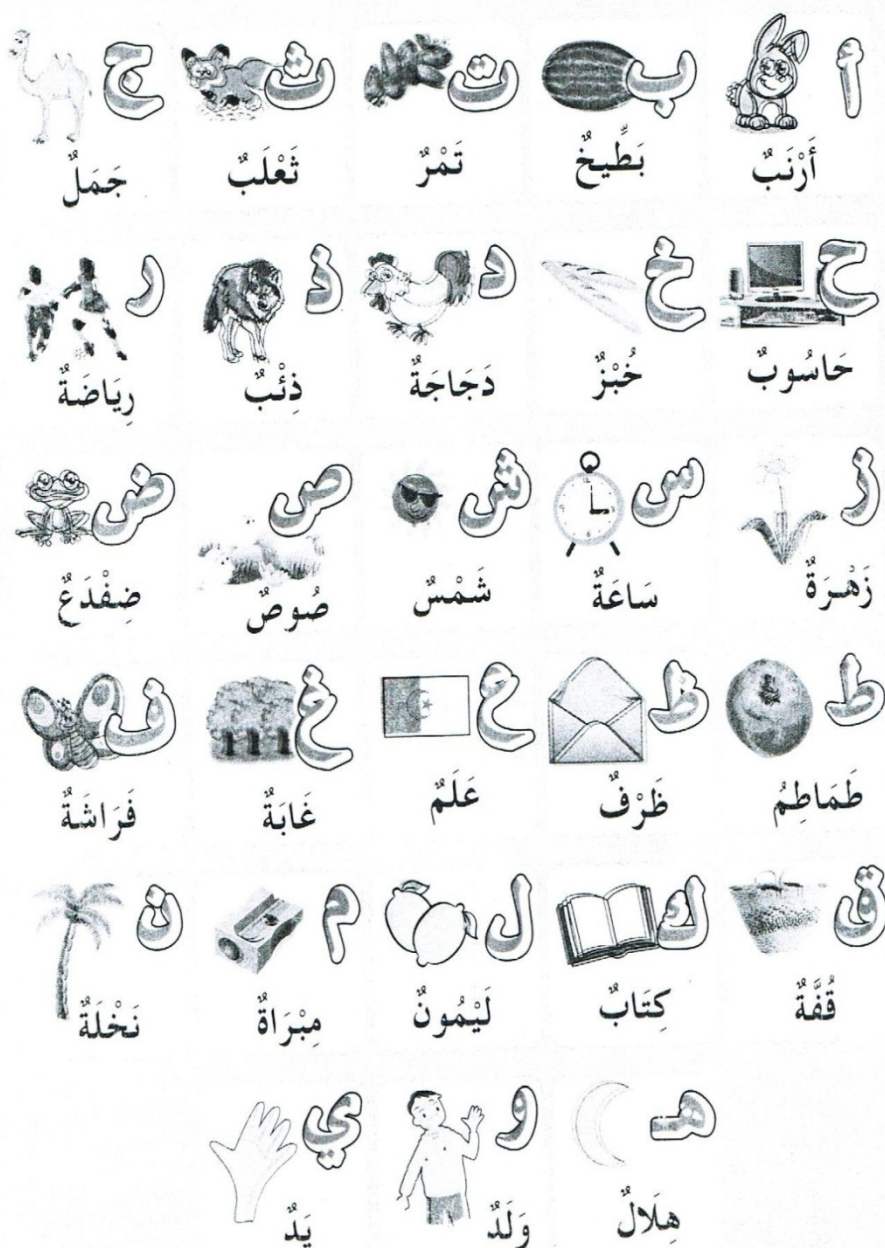 أ ب ت ث ج
أَرْنَبٌ بَطِّيخٌ تَمْرٌ ثَعْلَبٌ جَمَلٌ
ح خ د ذ ر
حَاسُوبٌ خُبْزٌ دَجَاجَةٌ ذِئْبٌ رِيَاضَةٌ
ز س ش ص ض
زَهْرَةٌ سَاعَةٌ شَمْسٌ صُوصٌ ضِفْدَعٌ
ط ظ ع غ ف
طَمَاطِمُ ظَرْفٌ عَلَمٌ غَابَةٌ فَرَاشَةٌ
ق ك ل م ن
قُفَّةٌ كِتَابٌ لَيْمُونٌ مِبْرَاةٌ نَخْلَةٌ
هـ و ي
هِلَالٌ وَلَدٌ يَدٌ